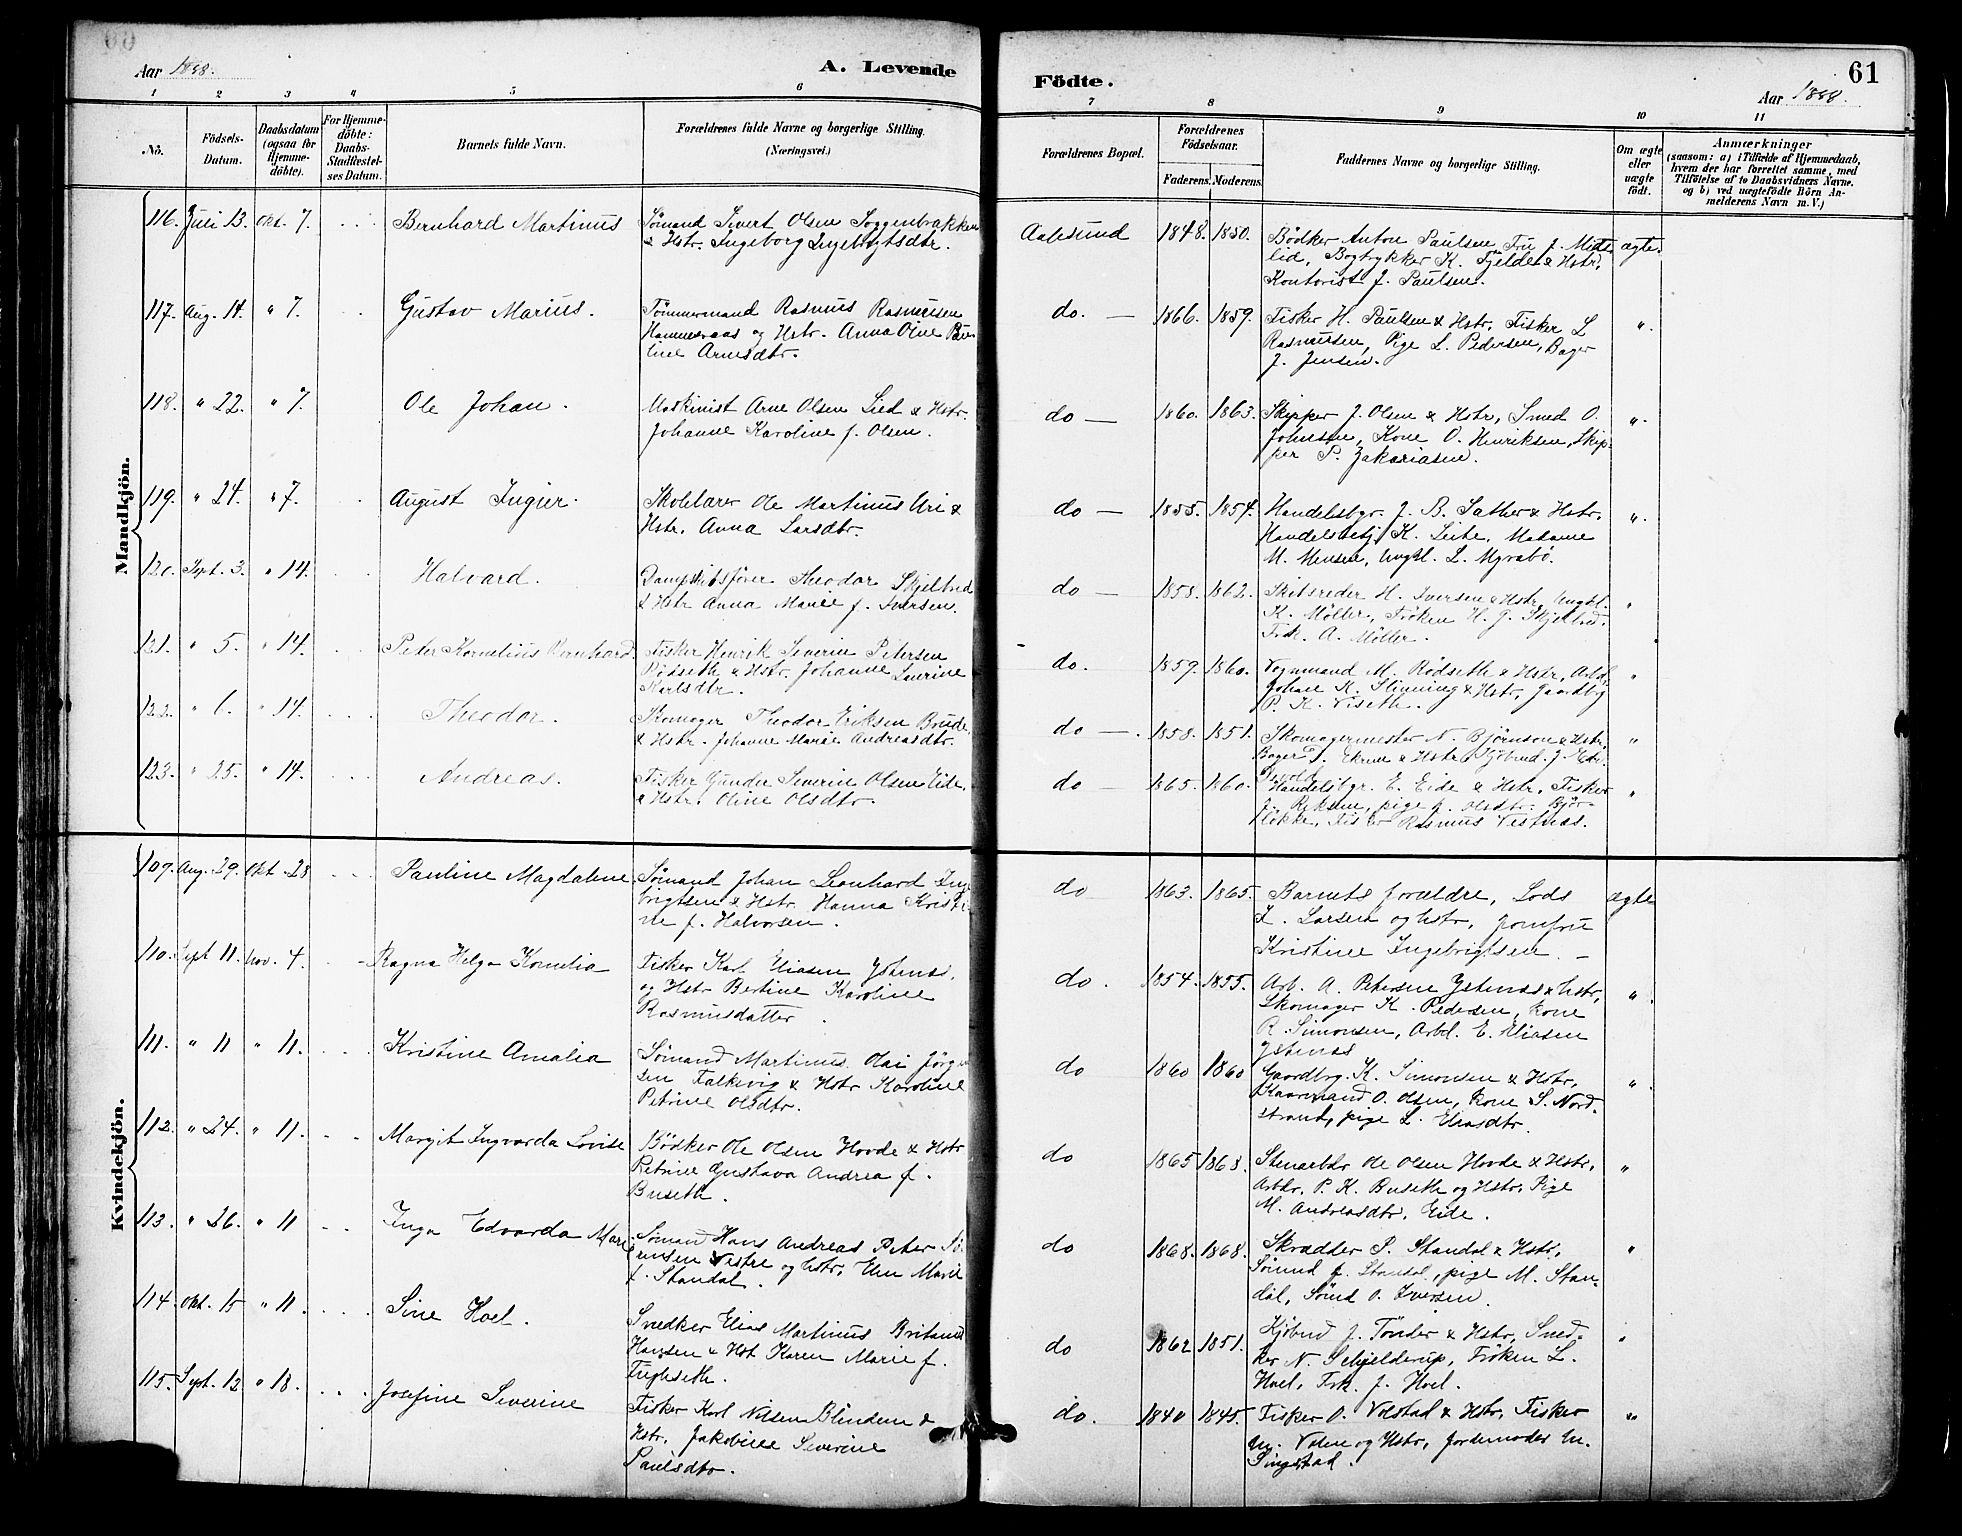 Aar 1888.
A. Levende
Födte.
61
Aar 1888.
1 2 3 4 5 6 7 8 9 10 11
No.
Födsels-
Datum.
Daabsdatum
(ogsaa for
Hjemme-
döbte).
For Hjemme-
döbte:
Daabs-
Stadfæstel-
ses Datum.
Barnets fulde Navn.
Forældrenes fulde Navne og borgerlige Stilling.
(Næringsvei.)
Forældrenes Bopæl.
Forældrenes
Födselsaar.
Faderens. Moderens.
Faddernes Navne og borgerlige Stilling.
Om ægte
eller
uægte
födt.
Anmærkninger
(saasom: a) i Tilfælde af Hjemmedaab,
hvem der har forrettet samme, med
Tilföielse af to Daabsvidners Navne.
og b) ved uægtefödte Börn An-
melderens Navn m. V.)
Mandkjön.
116. Juli 13. Okt. 7. Bernhard Martinus
Sømand Sivert Olsen
& Hstr. Ingeborg
Aalesund 1848. 1850.
Bødker Anton Paulsen, Fru J.
lid, Bogtrykker K. Fjelde & Hstr,
Kontorist J. Paulsen.
ægte.
117. Aug. 14. " 7. Gustav Marius.
Tømmermand Rasmus Rasmussen
og Hstr. Anna Oline
Arnesdtr.
do. — 1866. 1859.
Fisker H. Paulsen & Hstr, Fisker L
Rasmussen, Pige L. Pedersen, Bager
J. Jensen.
".
118. " 22. " 7. Ole Johan.
Maskinist Arne Olsen Lied & Hstr.
Johanne Karoline f. Olsen.
do — 1860. 1863.
Skipper J. Olsen & Hstr, Smed O.
Johnsen, Kone O. Henriksen, Skip-
per P. Zakariasen.
".
119. " 24. " 7. August Ingier.
Skolelærer Ole Martinus Uri &
Hstr. Anna Larsdtr.
do — 1855. 1854.
Handelsbgr. J. B. Sather & Hstr.
Handelsbetj K. Leite, Madame
M. Monsen, Ungkl. L. Myrabø.
".
120. Sept. 3. " 14. Halvard.
Dampskibsfører Theodor Skjelbred
& Hstr Anna Marie f. Iversen.
do — 1858. 1862.
Skibsreder H. Iversen & Hstr, Ungkl.
K. Möller, Frøken H. G. Skjelbred.
Frk. A. Möller.
"
121. " 5. " 14. Peter Kornelius Bernhard.
Fisker Henrik Severin Petersen
Rødseth & Hstr. Johanne Severine
Karlsdtr.
do. 1859. 1860.
Vognmand M. Rødseth & Hstr, Arbd.
Johan K. Slinning & Hstr, Gaardbg
P. K. Viseth.
"
122. " 6. " 14. Theodor.
Skomager Theodor Eriksen Brude,
& Hstr. Johanne Marie Andreasdtr.
do —. 1858. 1851.
Skomagermester N. Bjørnson & Hstr,
Bager P. Ekren & Hstr, Kjøbmd. J.
Devold
"
123. " 25. " 14. Andreas.
Fisker Gunder Severin Olsen Eide,
& Hstr. Oline Olsdtr.
do — 1865. 1860.
Handelsbgr. E. Eide & Hstr, Fisker
J. pige J. Olsdtr.
Fisker Rasmus Vestnæs.
"
Kvindekjön.
109. Aug. 29. Okt. 28 Pauline Magdalene
Sømand Johan Leonhard Inge
brigtsen & Hstr. Hanna Kristi-
ne f. Halvorsen.
do 1863. 1865.
Barnets forældre, Lods
L. Larsen og hstr, Jomfru
Kristine Ingebrigtsen. —
ægte
110. Sept 11. Nov. 4. Ragna Helga Kornelia
Fisker Karl Eliasen Ystenæs,
og Hstr Bertine Karoline
Rasmusdatter.
do. 1854. 1855.
Arb. A. Petersen Ystenæs & hstr,
Skomager K. Pedersen, kone
R. Simonsen, Arbd. E. Eliasen
Ystenæs
".
111. " 11 " 11. Kristine Amalia
Sømand Martinus Olai Jörgen
sen Falkevig & Hstr Karoline
Petrine Olsdtr.
do 1860 1860
Gaardbrg. K. Simonsen & Hstr,
O. Olsen, kone S. Nord-
strand, pige L. Eliasdtr.
".
112. " 24. " 11. Margit Ingvarda Lovise
Bödker Ole Olsen Hovde & Hstr
Petrine Gustava Andrea f.
Buseth.
do 1865 1863.
Stenarbdr Ole Olsen Hovde & Hstr,
Arbdr. P. K. Buseth og Hstr, Pige
M. Andreasdtr. Eide.
"
113. " 26. " 11 Inga Edvarda Marie
Sømand Hans Andreas Peter Sö-
rensen Vestre og hstr. Elen Marie
f. Standal.
do 1868. 1868.
Skrædder P. Standal & Hstr,
Sömnd J. Standal, pige M. Stan-
dal, Sömd O. Iversen.
"
114. Okt. 15 " 11. Sine Hoel.
Snedker Elias Martinus
Hansen & Hst Karen Marie f.
Fugleseth.
do 1862 1851.
Kjöbmd J. Tönder & Hstr, Sned-
ker N. Schjelderup, Fröken L.
Hoel, Frk. J. Hoel.
"
115. Sept. 12 " 18. Josefine Severine
Fisker Karl Nilsen Blindem &
Hstr. Jakobine Severine
Paulsdtr.
do. 1840 1845.
Fisker O. Volstad & Hstr, Fisker
M. og Hstr, Jordemoder M.
Singstad.
"